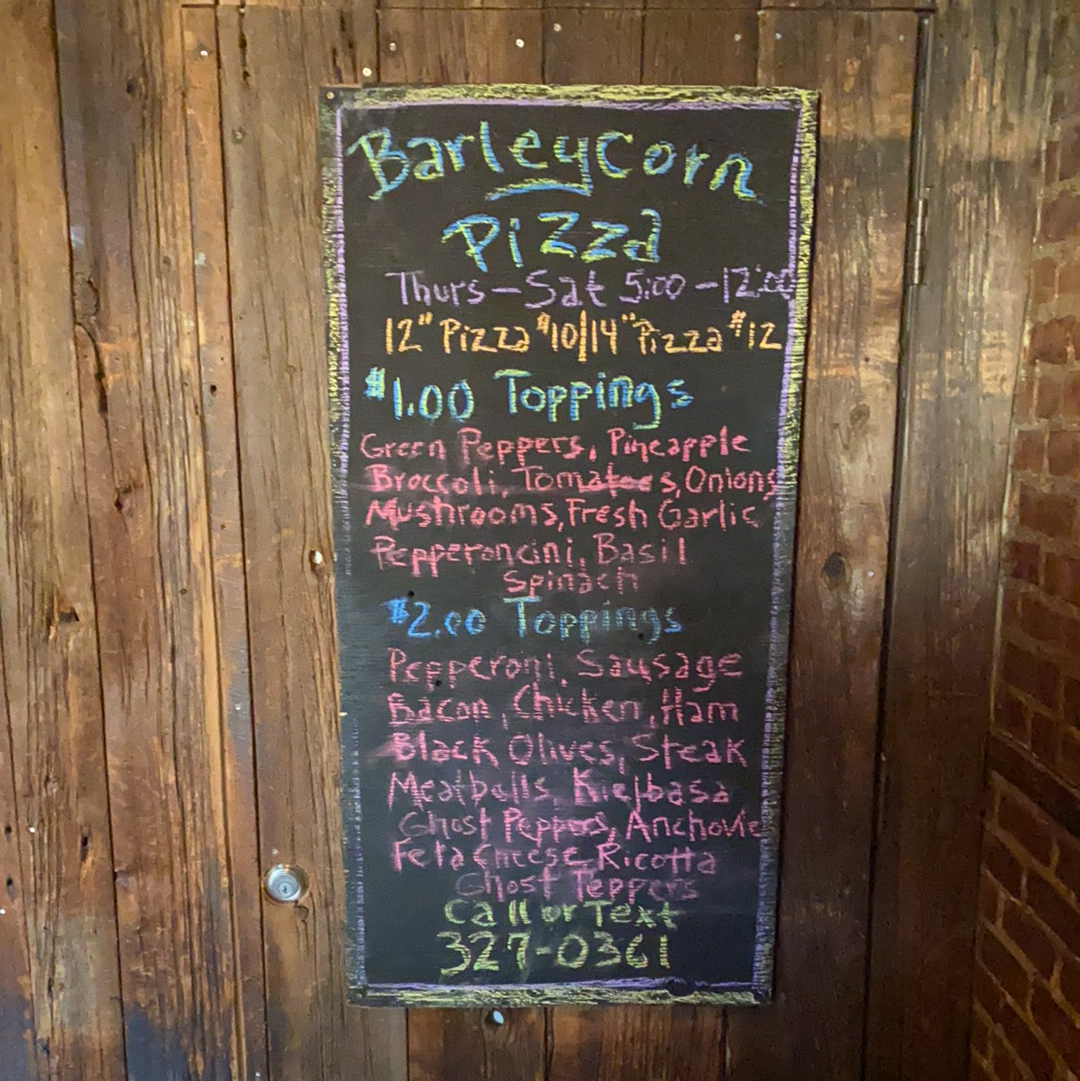 BarleyCorn
Pizza
Thurs-Sat 5:00-12:00
12" Pizza $10/14" Pizza $12
$1.00 Toppings
Green Peppers, Pineapple
Broccoli, Tomatoes, Onions
Mushrooms, Fresh Garlic
Pepperoncini, Basil
Spinach
$2.00 Toppings
Pepperoni, Sausage
Bacon, Chicken, Ham
Black Olives, Steak
Meatballs, Kielbasa
Ghost Peppers, Anchovie
Feta Cheese Ricotta
Ghost Peppers
Call or Text
327-0361